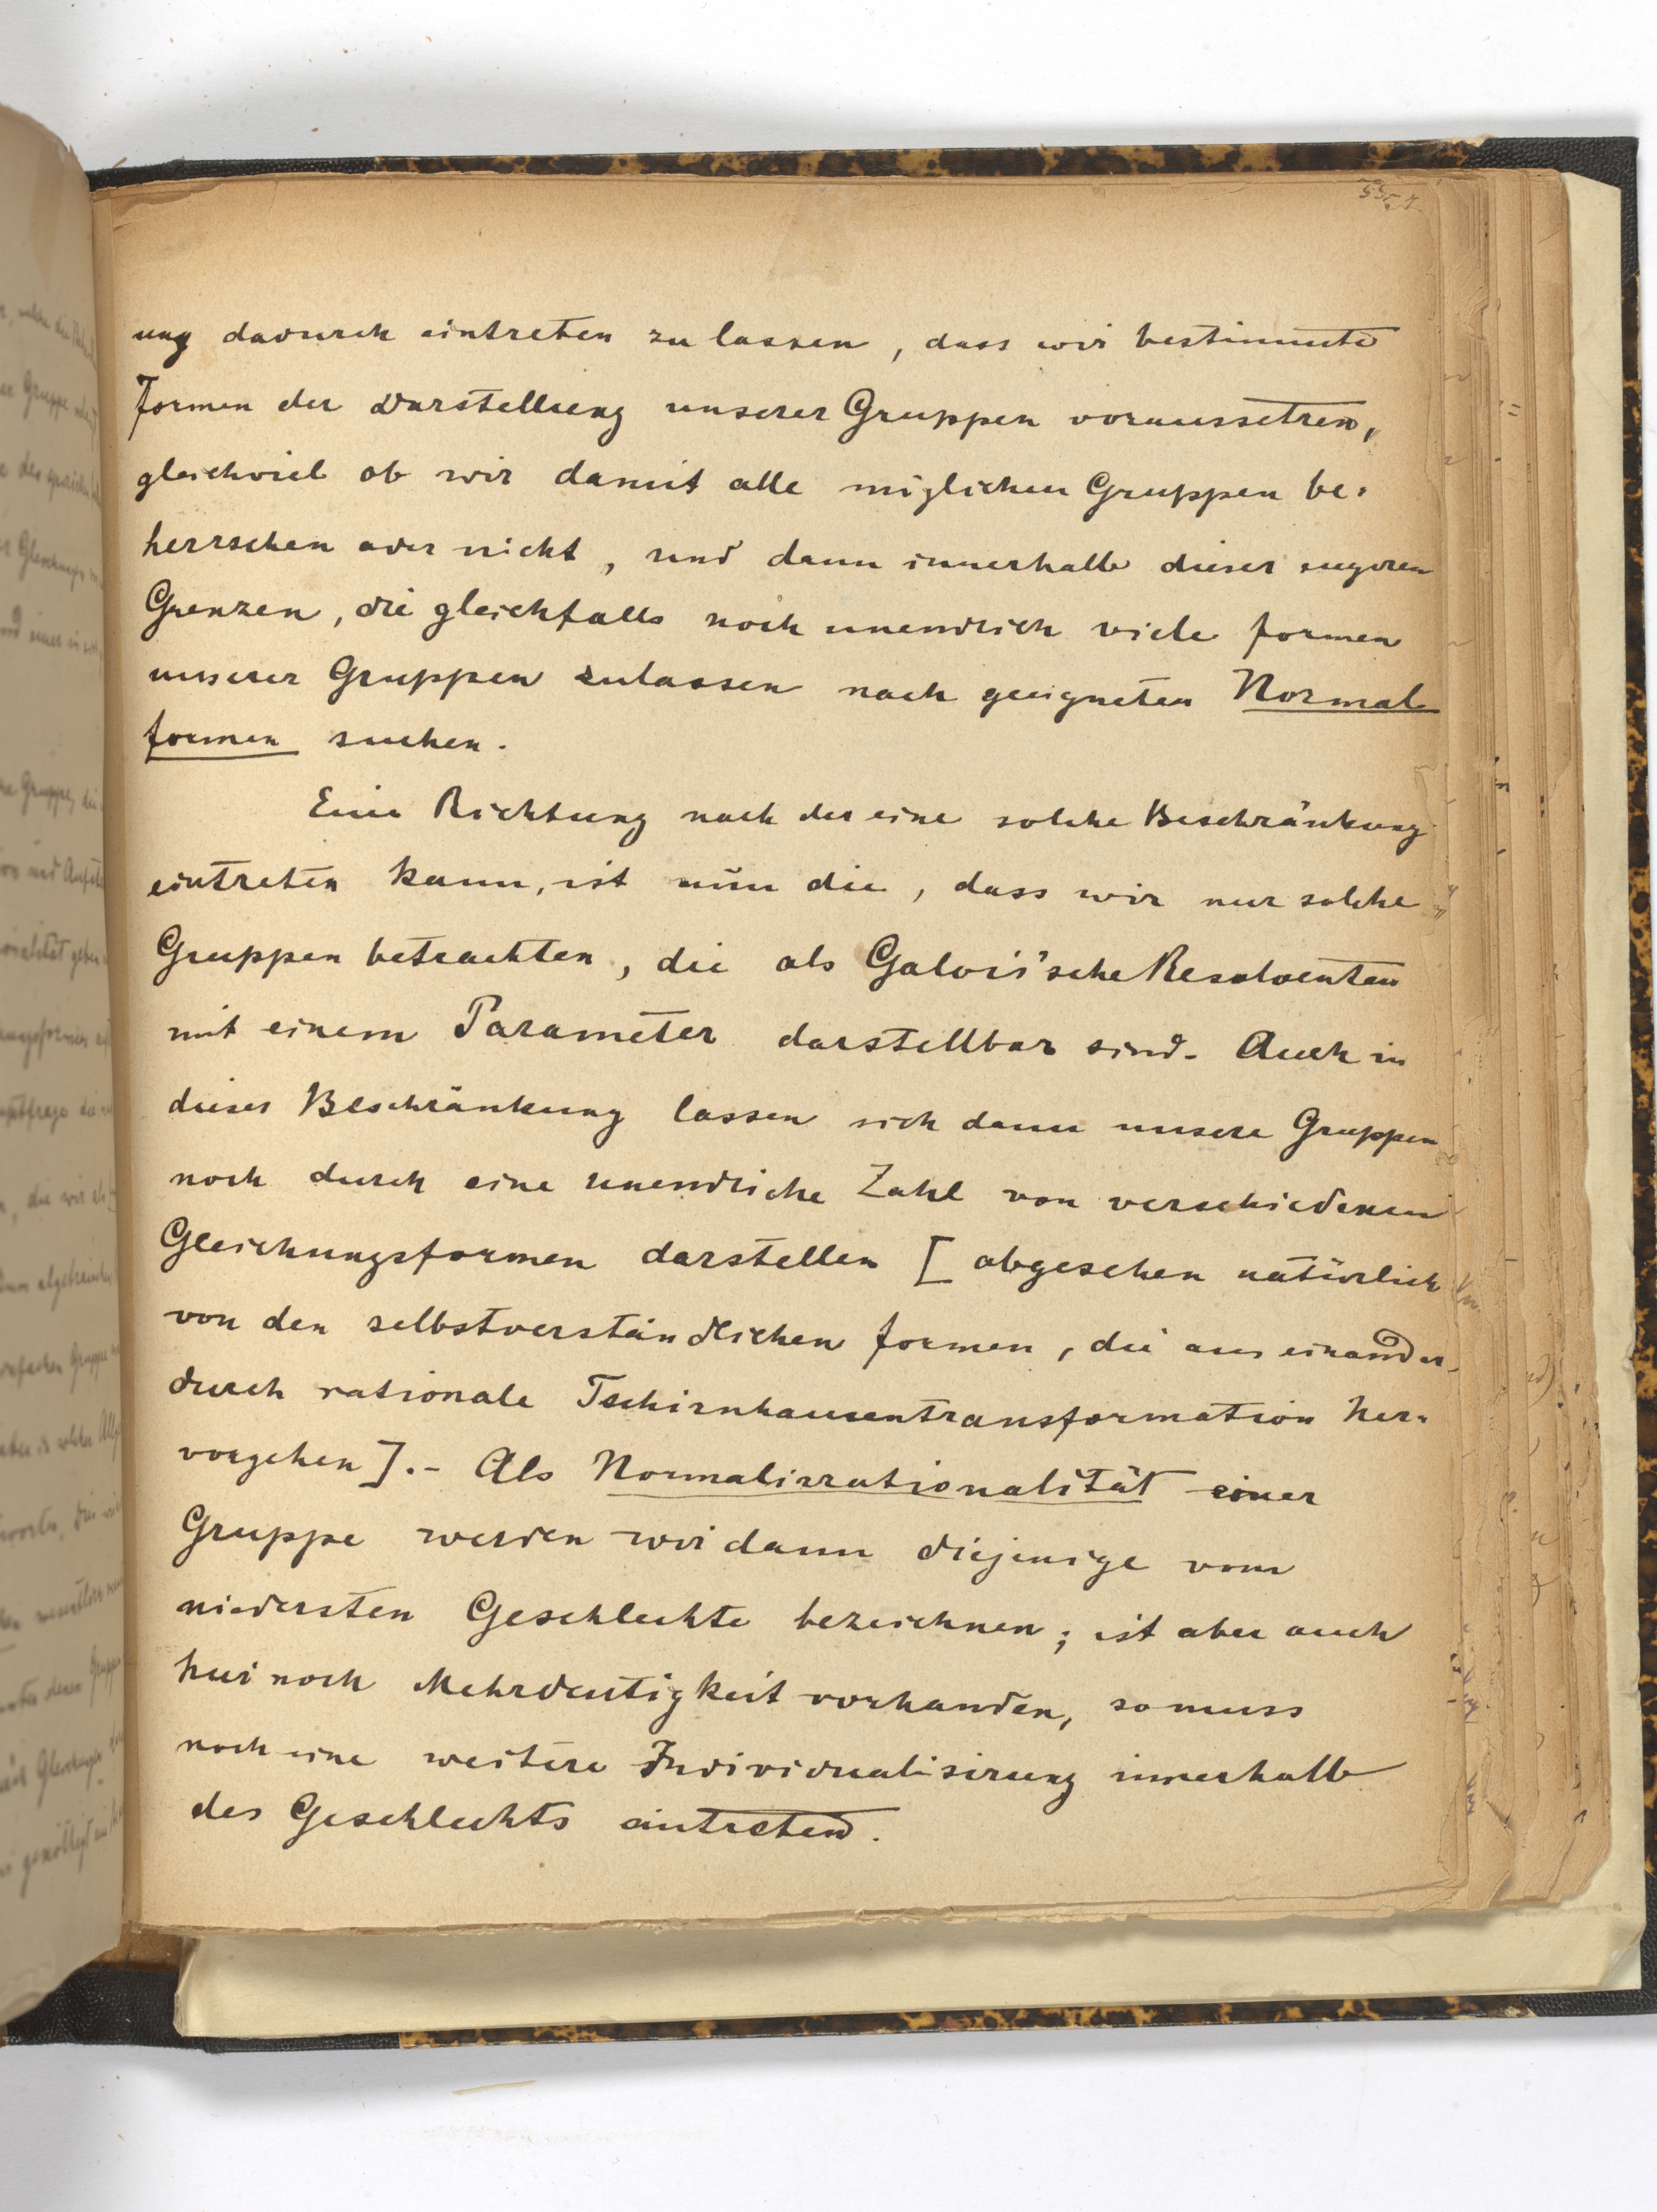 ung dadurch eintreten zu lassen, dass wir bestimmte
Formen der Darstellung unserer Gruppen voraussetzen,
gleichviel ob wir damit alle möglichen Gruppen be-
herrschen oder nicht, und dann innerhalb dieser engeren
Grenzen, die gleichfalls noch unendlich viele Formen
unserer Gruppen zulassen nach geeigneten Normal
formen suchen.
Eine Richtung nach der eine solche Beschränkung
eintreten kann, ist nun die, dass wir nur solche
Gruppen betrachten, die als Galois'sche Resolventen
mit einem Parameter darstellbar sind. Auch in
dieser Beschränkung lassen sich dann unsere Gruppen
noch durch eine unendliche Zahl von verschiedenen
Gleichungsformen darstellen [abgesehen natürlich
von den selbstverständlichen Formen, die aus einander
durch rationale Tschirnhausentransformation her-
vorgehen].- Als Normalirrationalität einer
Gruppe werden wir dann diejenige vom
niedersten Geschlechte bezeichnen; ist aber auch
hier noch Mehrdeutigkeit vorhanden, so muss
noch eine weitere Individualisirung innerhalb
des Geschlechts eintreten.